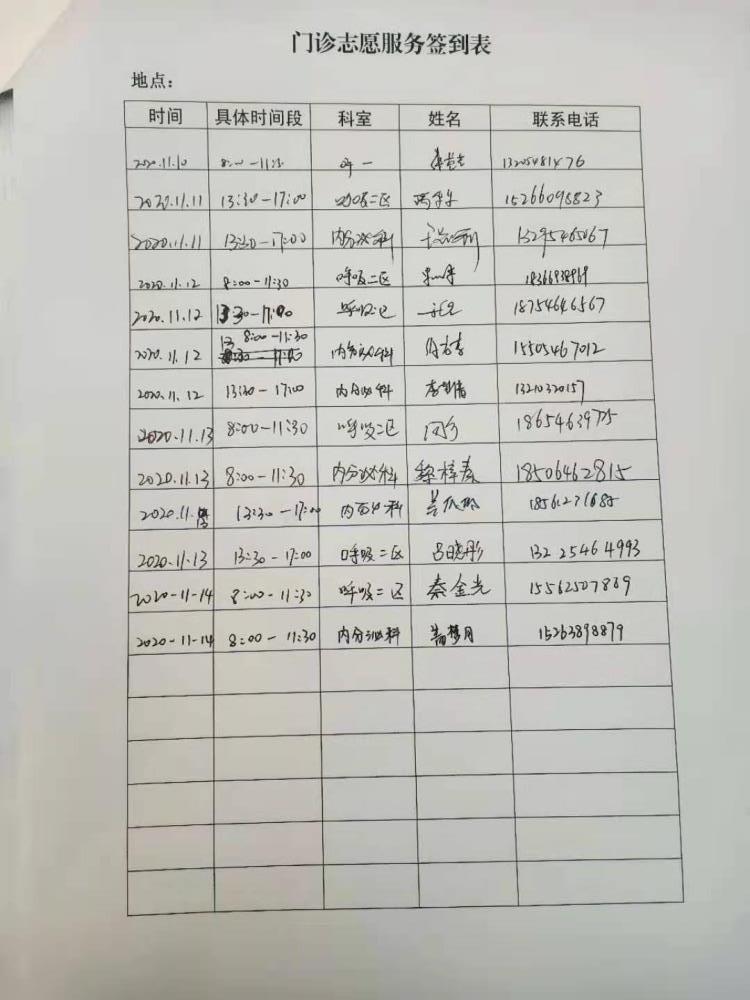 门诊志愿服务签到表
地点：
时间 具体时间段 科室 姓名 联系电话
2020.11.10 8:00-11:30 呼一 13205481476
2020.11.11 13:30-17:00 呼吸二区 15266098823
2020.11.11 13:30-17:00 内分泌科 15295465067
2020.11.12 8:00-11:30 呼吸二区
2020.11.12 13:30-17:00 18754646567
2020.11.12 8:00-11:30 内分泌科 15505467012
2020.11.12 13:30-17:00 内分泌科 13210320157
2020.11.13 8:00-11:30 呼吸二区
2020.11.13 8:00-11:30 内分泌科 黎梓春 18506462815
13:30-17:00 内分泌科
2020.11.13 13:30-17:00 呼吸二区 吕晓彤 13225464993
2020-11-14 8:00-11:30 呼吸二区 秦金光 15562507889
2020-11-14 8:00-11:30 内分泌科 15263898879